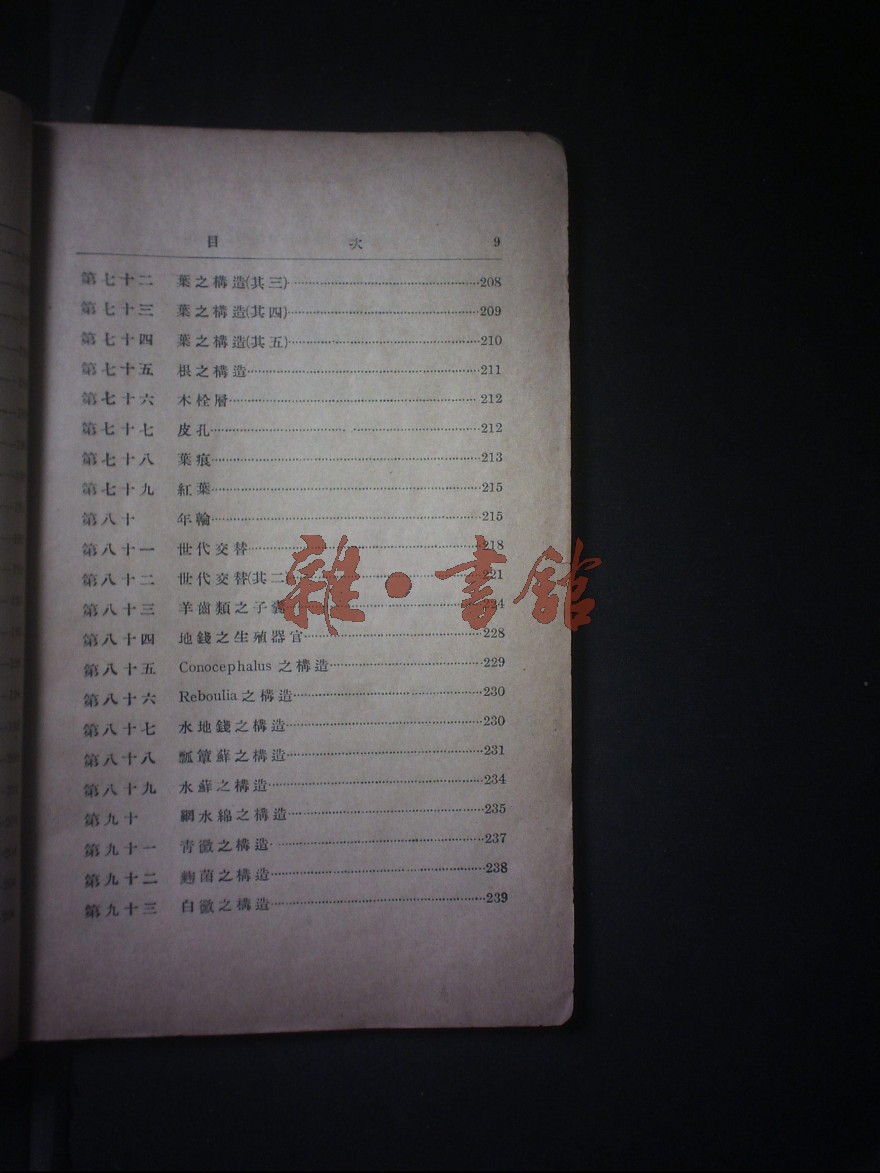 目 次 9
第七十二 葉之構造(其三)……208
第七十三 葉之構造(其四)……209
第七十四 葉之構造(其五)……210
第七十五 根之構造……211
第七十六 木栓層……212
第七十七 皮孔……212
第七十八 葉痕……213
第七十九 紅葉……215
第八十 年輪……215
第八十一 世代交替……218
第八十二 世代交替(其二)……221
第八十三 羊齒類之子囊……224
第八十四 地錢之生殖器官……228
第八十五 Conocephalus之構造……229
第八十六 Reboulia之構造……230
第八十七 水地錢之構造……230
第八十八 瓢蕈蘇之構造……231
第八十九 水蘇之構造……234
第九十 網水綿之構造……235
第九十一 青黴之構造……237
第九十二 麴菌之構造……238
第九十三 白黴之構造……239
雜·書館